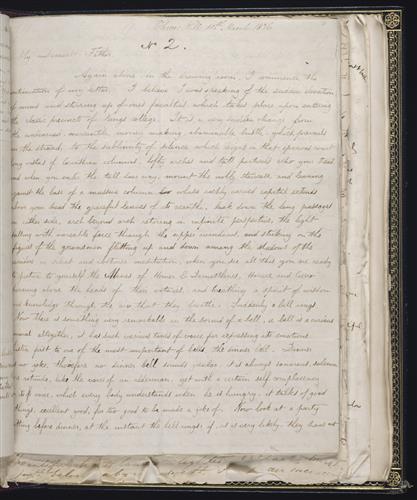 Herne Hill 11th March 1836
My Dearest Father
No 2.
Again alone in the drawing room, I commence the
continuation of my letter. I believe I was speaking of the sudden elevation
of mind and stirring up of one's faculties which takes place upon entering
the classic precincts of Kings college. It is a very sudden change from
the undecorous, mercantile, money making, abominable bustle, which prevails
in the strand, to the sublimity of silence which reigns in that spacious court
long vistas of Corinthian columns, lofty arches and tall porticoes who you tread
and when you enter the tall door way, mount the noble staircase, and leaning
against the base of a massive column whose richly carved capital extends
above you head the graceful leaves of its acanthi, look down the long passages
on either side, arch beyond arch retiring in infinite perspective, the light
falling with variable force through the upper, and striking on the
figures of the gownsmen flitting up and down among the shadows of the
in silent and solemn meditation, when you see all this you are ready
to picture to yourself the Muses of Homer & Demosthenes, Horace and Cicero
hovering above the heads of their votaries, and breathing a spirit of wisdom
and knowledge through the air that they breathe. Suddenly a bell rings.
Now there is something very remarkable in the sound of a bell, a bell is a curious
animal altogether, it has such various tones of voice for expressing its emotions.
Listen first to one of the most important of bells, the dinner bell. Dinner
is no joke, therefore no dinner bell sounds jocular, it is always sonorous, solemn
rotundo, like the voice of an alderman, yet with a certain self complacency
of tone, which every body understands when he is hungry, it talks of good
things, excellent good, far too good to be made a joke of. Now look at a party
sitting before dinner, at the instant the bell rings, if, it is very likely, they have not